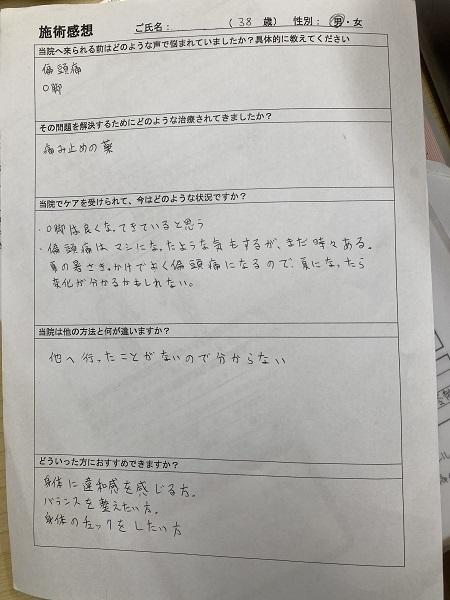 施術感想 ご氏名： （ 38 歳） 性別： 男・女
当院へ来られる前はどのような声で悩まれていましたか？具体的に教えてください
偏頭痛
O脚
その問題を解決するためにどのような治療されてきましたか？
痛み止めの薬
当院でケアを受けられて、今はどのような状況ですか？
・O脚は良くなってきていると思う
・偏頭痛はマシになったような気もするが、まだ時々ある。
夏の暑さきっかけでよく偏頭痛になるので、夏になったら
変化が分かるかもしれない。
当院は他の方法と何が違いますか？
他へ行ったことがないので分からない
どういった方におすすめできますか？
身体に違和感を感じる方。
バランスを整えたい方。
身体のチェックをしたい方